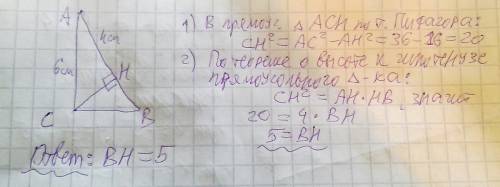 A
4см
6см
H
C
B
Ответ: BH = 5
1) В прямоуг. △ ACH по т. Пифагора:
CH² = AC² - AH² = 36 - 16 = 20
2) По теореме о высоте к гипотенузе
прямоугольного △-ка:
CH² = AH · HB, значит
20 = 4 · BH
5 = BH